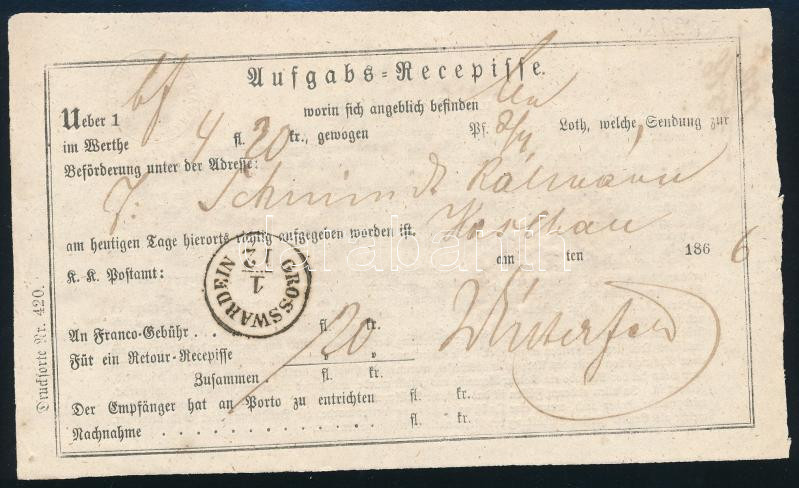 Aufgabs-Recepisse.
Ueber 1 bf worin sich angeblich befinden
im Werthe 4 fl. 20 kr., gewogen Pf. Loth, welche Sendung zur
Beförderung unter der Adresse:
Kálmánn
am heutigen Tage hierorts richtig aufgegeben worden ist. Kaschau
am ten 186 6
K. K. Postamt:
GROSSWARDEIN
1
12
An Franco-Gebühr . . . fl. 20 kr.
Für ein Retour-Recepisse " "
Zusammen . fl. kr.
Der Empfänger hat an Porto zu entrichten fl. kr.
Nachnahme . . . . . . . . . . . fl. kr.
Drucksorte Nr. 420.
darabanth